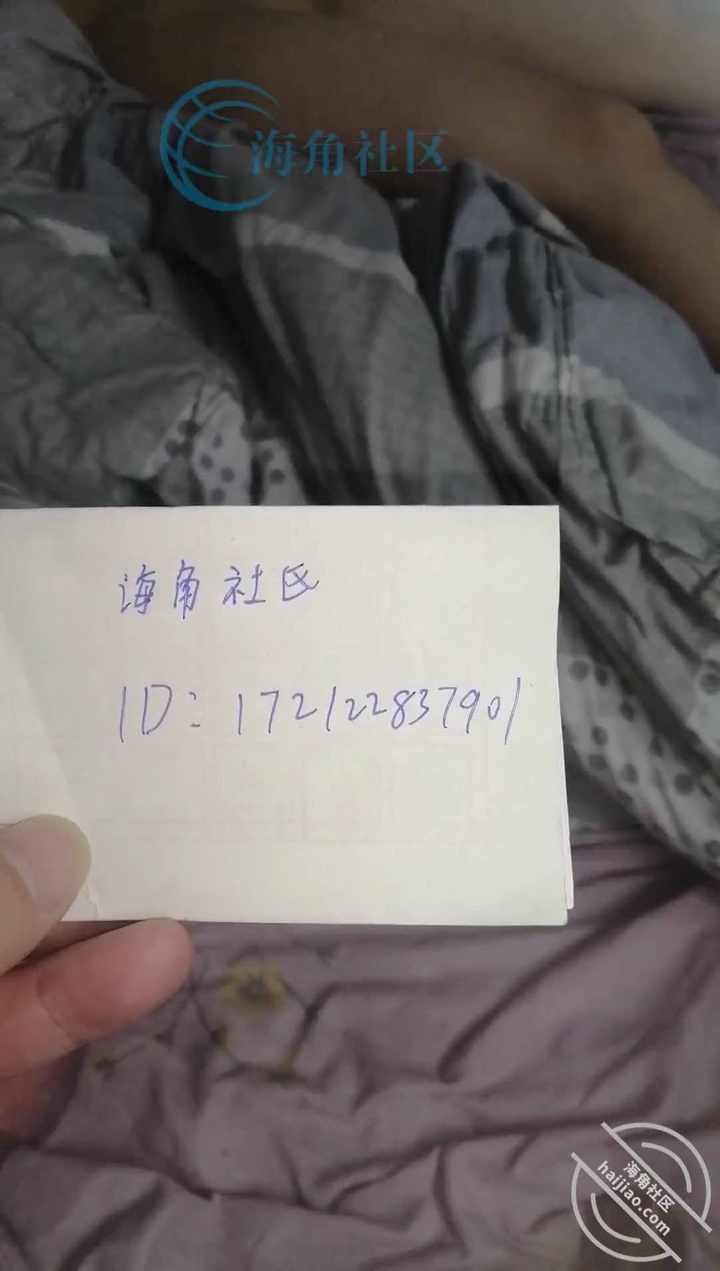 海角社区
海角社区
ID:172122837901
海角社区
haijiao.com